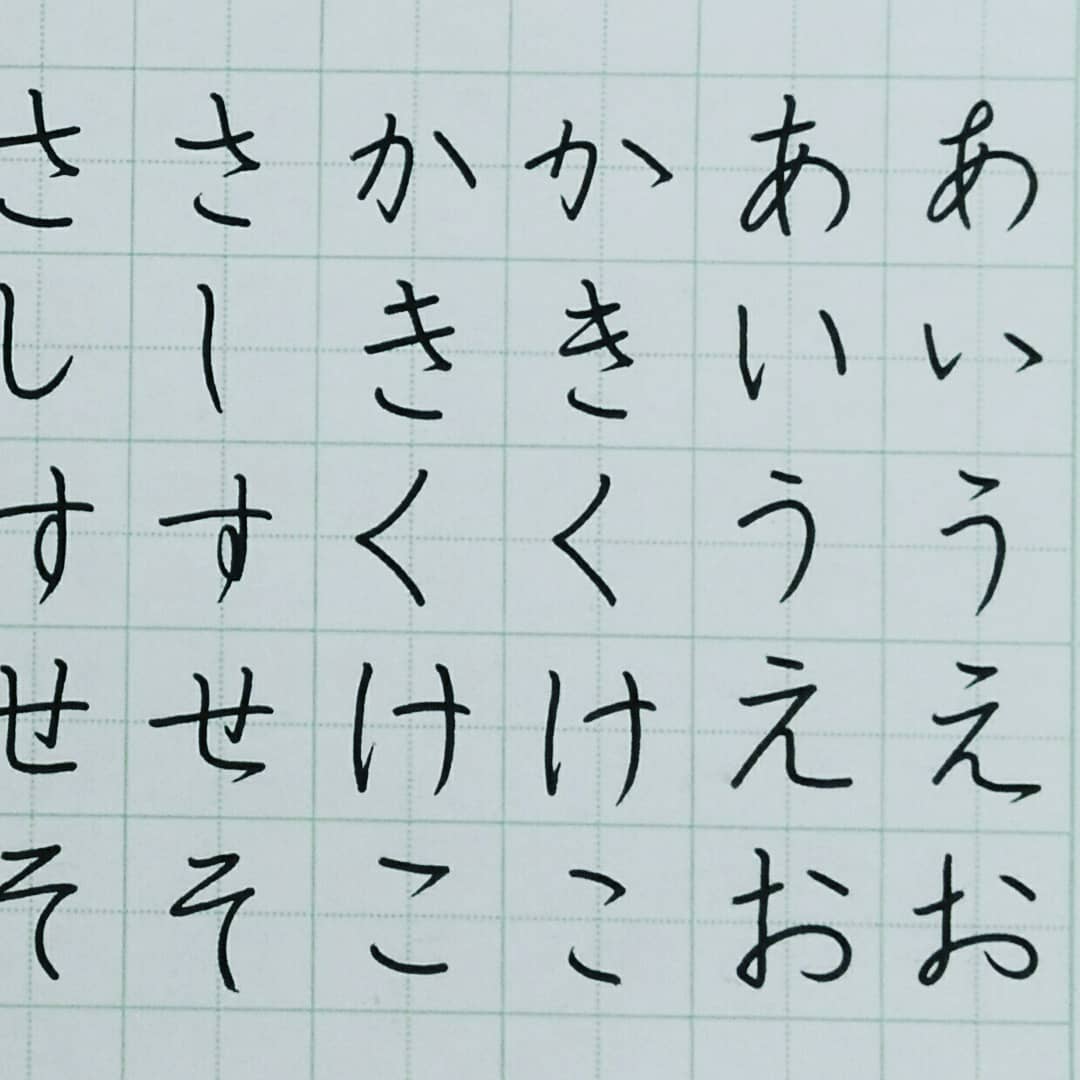 あいうえお
あいうえお
かきくけこ
かきくけこ
さしすせそ
さしすせそ